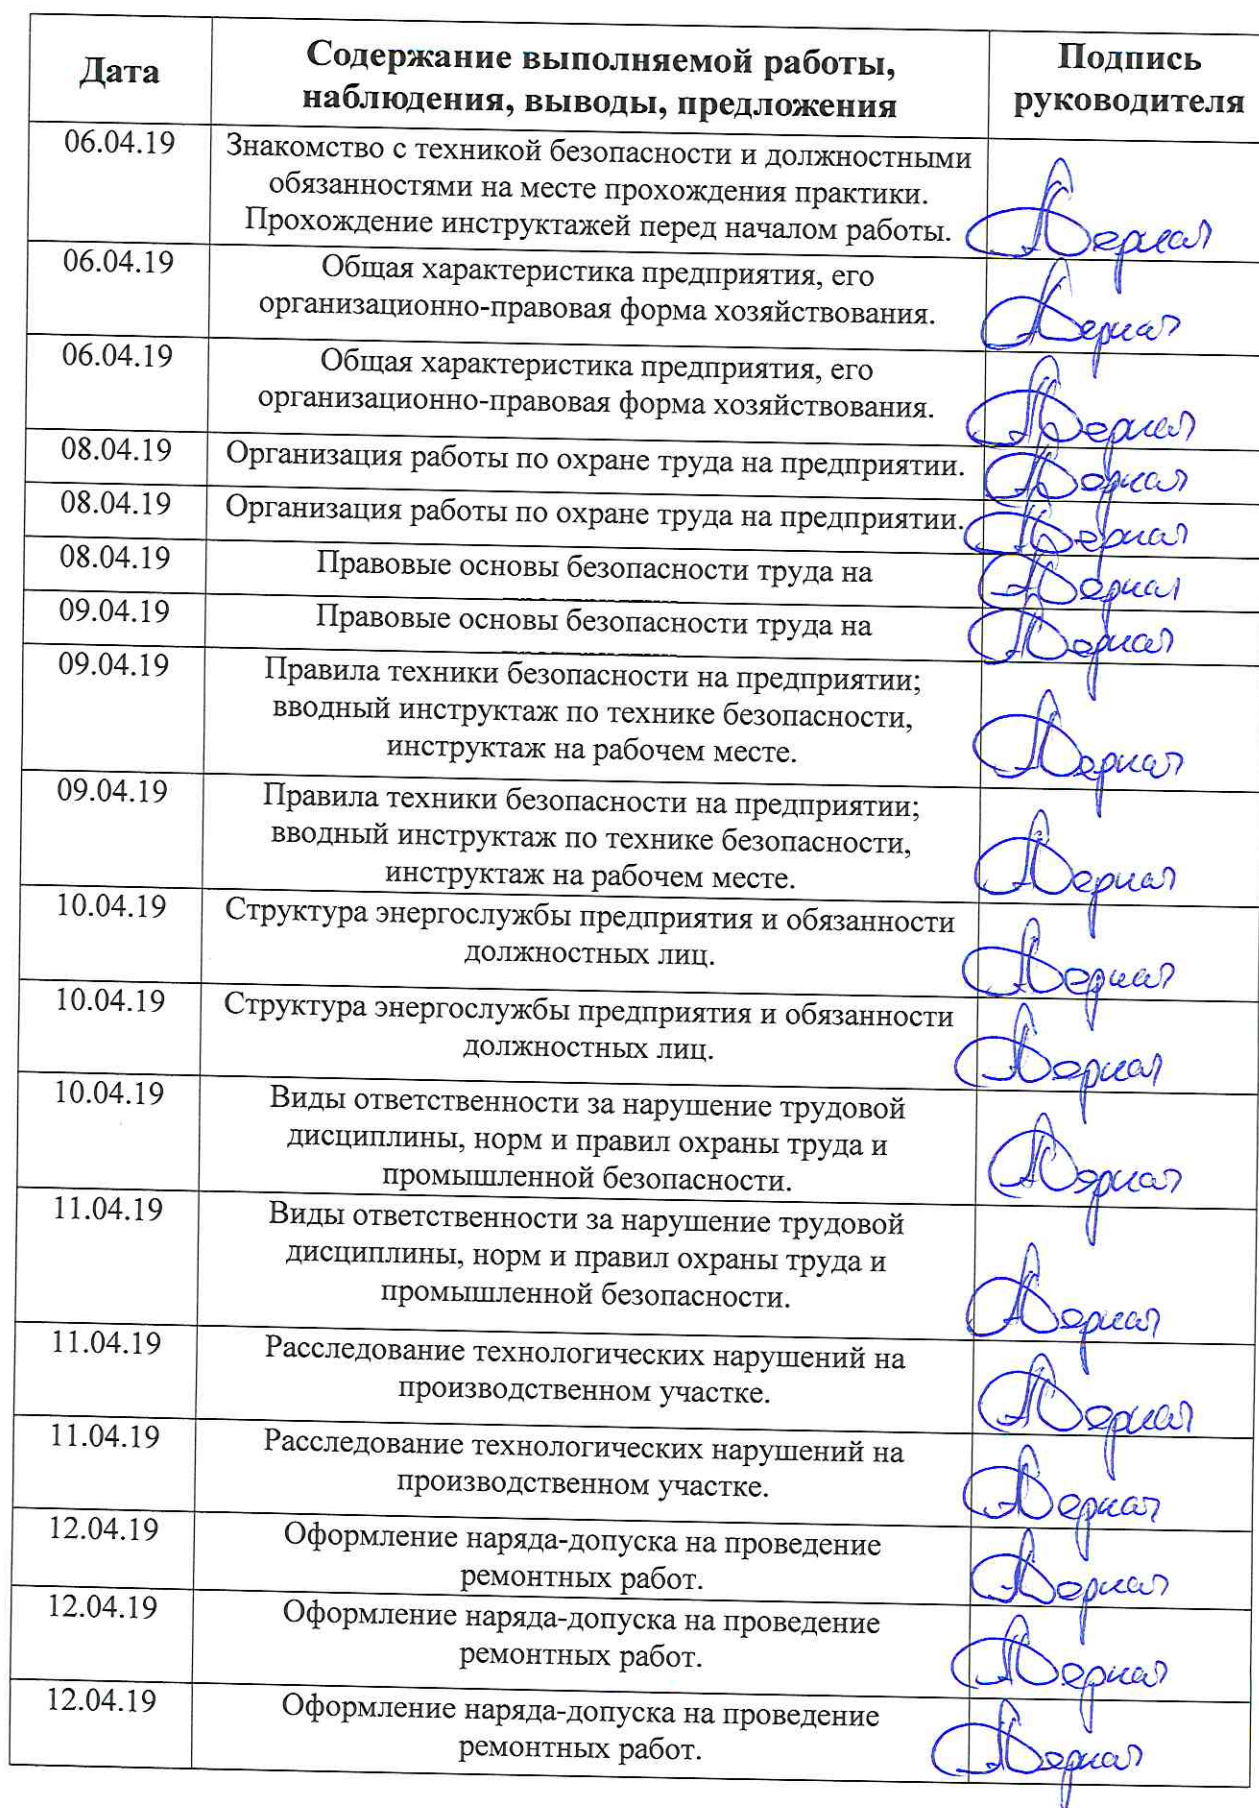 Дата
Содержание выполняемой работы,
наблюдения, выводы, предложения
Подпись
руководителя
06.04.19
Знакомство с техникой безопасности и должностными
обязанностями на месте прохождения практики.
Прохождение инструктажей перед началом работы.
06.04.19
Общая характеристика предприятия, его
организационно-правовая форма хозяйствования.
06.04.19
Общая характеристика предприятия, его
организационно-правовая форма хозяйствования.
08.04.19
Организация работы по охране труда на предприятии.
08.04.19
Организация работы по охране труда на предприятии.
08.04.19
Правовые основы безопасности труда на
09.04.19
Правовые основы безопасности труда на
09.04.19
Правила техники безопасности на предприятии;
вводный инструктаж по технике безопасности,
инструктаж на рабочем месте.
09.04.19
Правила техники безопасности на предприятии;
вводный инструктаж по технике безопасности,
инструктаж на рабочем месте.
10.04.19
Структура энергослужбы предприятия и обязанности
должностных лиц.
10.04.19
Структура энергослужбы предприятия и обязанности
должностных лиц.
10.04.19
Виды ответственности за нарушение трудовой
дисциплины, норм и правил охраны труда и
промышленной безопасности.
11.04.19
Виды ответственности за нарушение трудовой
дисциплины, норм и правил охраны труда и
промышленной безопасности.
11.04.19
Расследование технологических нарушений на
производственном участке.
11.04.19
Расследование технологических нарушений на
производственном участке.
12.04.19
Оформление наряда-допуска на проведение
ремонтных работ.
12.04.19
Оформление наряда-допуска на проведение
ремонтных работ.
12.04.19
Оформление наряда-допуска на проведение
ремонтных работ.